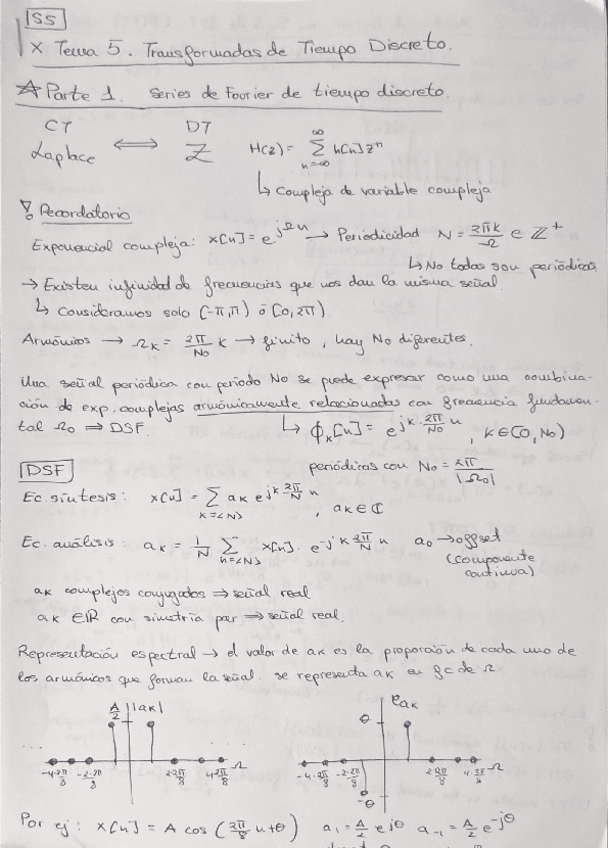 SS
x Tema 5. Transformadas de Tiempo Discreto.
☆ Parte 1. Series de Fourier de tiempo discreto.
CT ⟺ DT
Laplace Z H(z) = ∑_{n=∞}^{∞} h[n] z^n
↳ Compleja de variable compleja
Recordatorio
Exponencial compleja: x[n] = e^{jΩn} → Periodicidad N = 2πk/Ω ∈ Z^+
↳ No todas son periódicas.
→ Existen infinidad de frecuencias que nos dan la misma señal.
↳ Consideramos solo (-π,π) ó [0, 2π)
Armónicos → Ω_k = 2π/N_0 k → finito, hay N_0 diferentes.
Una señal periódica con periodo N_0 se puede expresar como una combina-
ción de exp. complejas armónicamente relacionadas con frecuencia fundamen-
tal Ω_0 ⟹ DSF. ↳ ϕ_k[n] = e^{jk·2π/N_0 n}, k∈[0, N_0)
DSF periódicas con N_0 = 2π/|Ω_0|
Ec. síntesis: x[n] = ∑_{k=<N>} a_k e^{jk 2π/N n}, a_k ∈ ℂ
Ec. análisis: a_k = 1/N ∑_{n=<N>} x[n]· e^{-jk 2π/N n} a_0 → offset
(componente
continua)
a_k complejos conjugados ⟹ señal real
a_k ∈ℝ con simetría par ⟹ señal real.
Representación espectral → el valor de a_k es la proporción de cada uno de
los armónicos que forman la señal. se representa a_k en fc de Ω
A/2 |a_k| θ a_k
... ...
-4·2π/8 -2·2π/8 2·2π/8 4·2π/8 Ω -4·2π/8 -2·2π/8 2·2π/8 4·2π/8 Ω
-θ
Por ej: x[n] = A cos (2π/8 n+θ) a_1 = A/2 e^{jθ} a_{-1} = A/2 e^{-jθ}